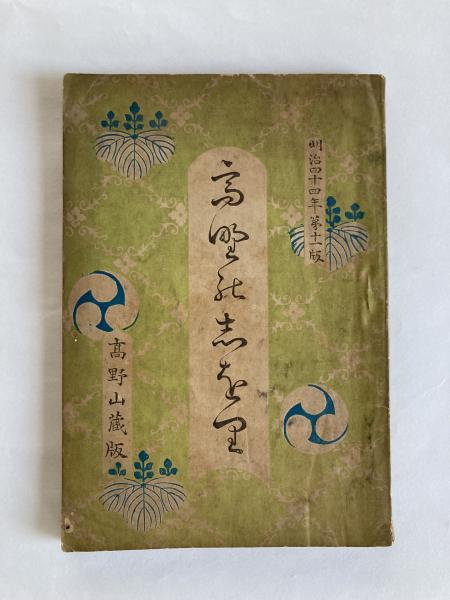 明治四十四年第十一版
高野能志を里
高野山蔵版